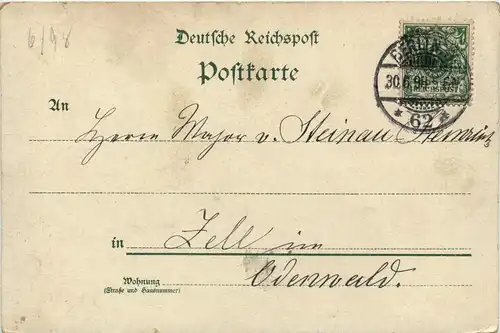 6/98
Deutsche Reichspost
Postkarte
BERLIN
30.6.98
* 62 *
REICHSPOST
An
Herrn Major v. Steinau-Steinrück
in Zell im
Odenwald.
Wohnung
(Straße und Hausnummer)